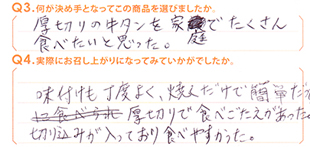 Q3.何が決め手となってこの商品を選びましたか。
厚切りの牛タンを家庭でたくさん
食べたいと思った。
Q4.実際にお召し上がりになってみていかがでしたか。
味付けも丁度よく、焼くだけで簡単だ
に食べられ 厚切りで食べごたえがあった。
切り込みが入っており食べやすかった。